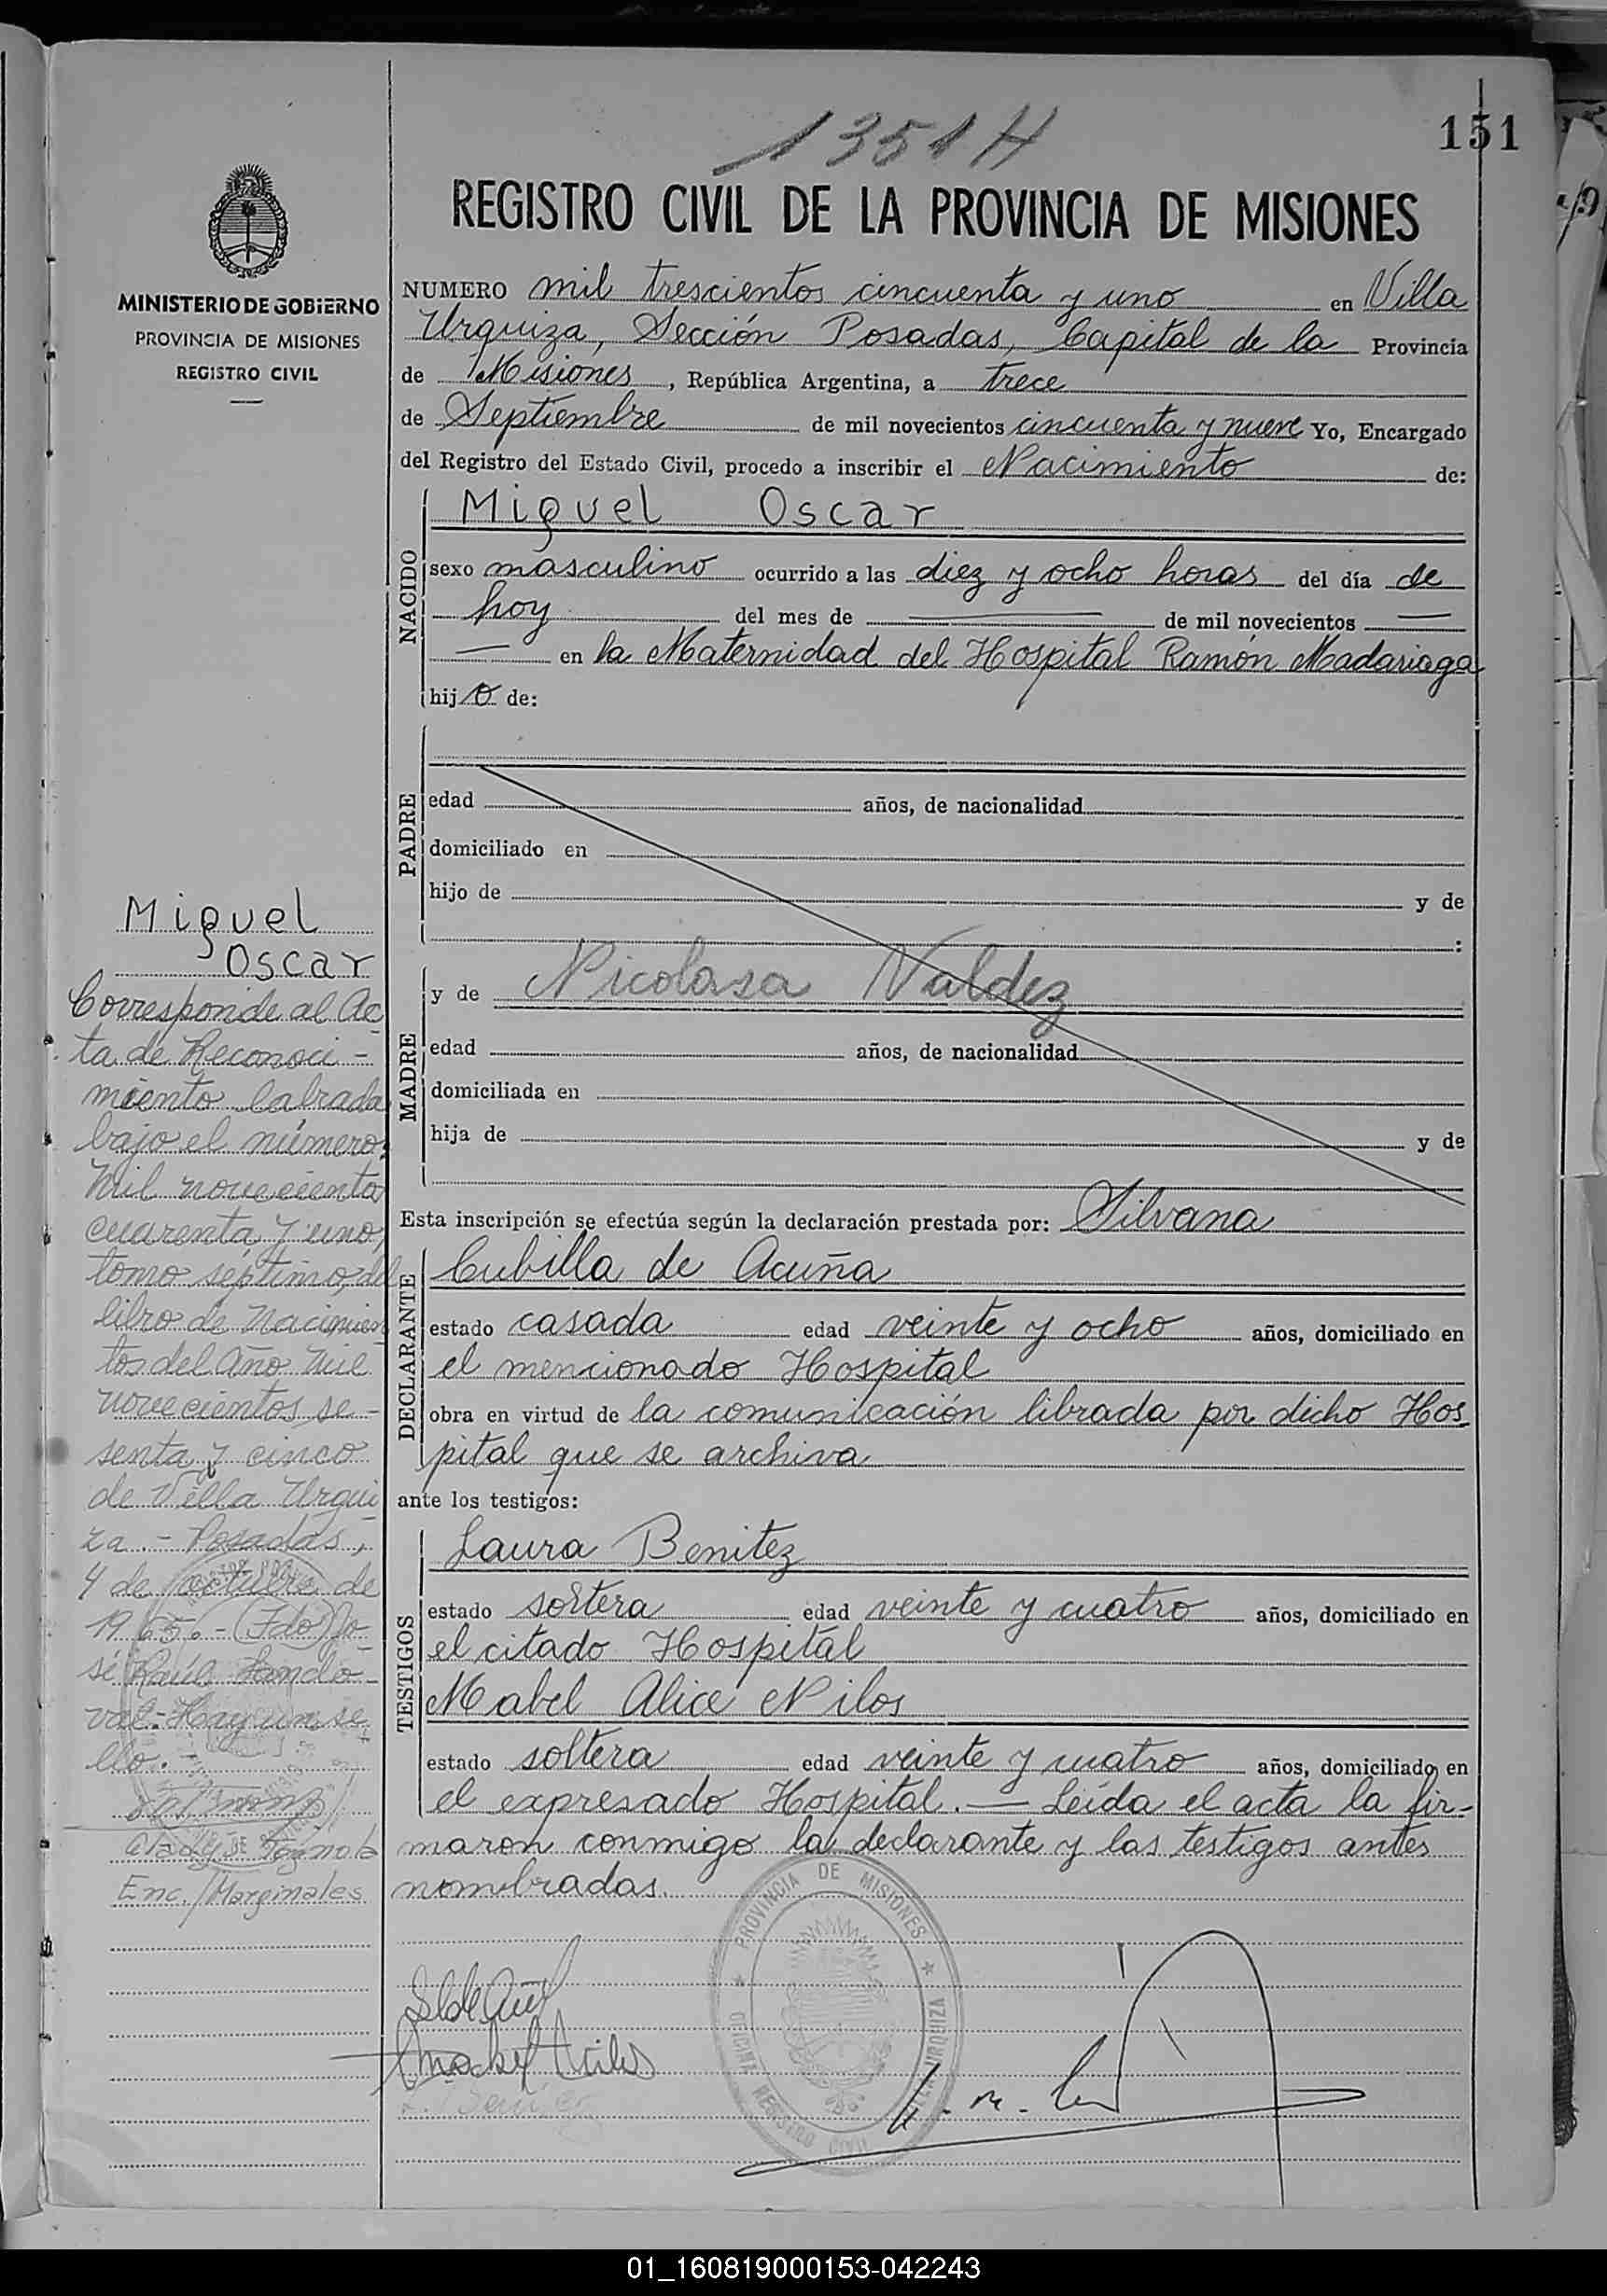 1351 H
151
REGISTRO CIVIL DE LA PROVINCIA DE MISIONES
MINISTERIO DE GOBIERNO
PROVINCIA DE MISIONES
REGISTRO CIVIL
NUMERO mil trescientos cincuenta y uno en Villa
Urquiza, Sección Posadas, Capital de la Provincia
de Misiones, República Argentina, a trece
de Septiembre de mil novecientos cincuenta y nueve Yo, Encargado
del Registro del Estado Civil, procedo a inscribir el Nacimiento de:
NACIDO
Miguel Oscar
sexo masculino ocurrido a las diez y ocho horas del día de
hoy del mes de — de mil novecientos —
— en la Maternidad del Hospital Ramón Madariaga
hijo de:
PADRE
edad años, de nacionalidad
domiciliado en
hijo de y de
:
MADRE
y de Nicolasa Valdez
edad años, de nacionalidad
domiciliada en
hija de y de
Esta inscripción se efectúa según la declaración prestada por: Silvana
DECLARANTE
Cubilla de Acuña
estado casada edad veinte y ocho años, domiciliado en
el mencionado Hospital
obra en virtud de la comunicación librada por dicho Hos
pital que se archiva
ante los testigos:
TESTIGOS
Laura Benitez
estado soltera edad veinte y cuatro años, domiciliado en
el citado Hospital
Mabel Alice Nilos
estado soltera edad veinte y cuatro años, domiciliado en
el expresado Hospital. — Leída el acta la fir-
maron conmigo la declarante y las testigos antes
nombradas.
Miguel
Oscar
Corresponde al Ac
ta de Reconoci-
miento labrada
bajo el número:
Mil novecientos
cuarenta y uno,
tomo séptimo, del
libro de Nacimien
tos del Año Mil
novecientos se-
senta y cinco
de Villa Urqui
za. - Posadas,
4 de octubre de
1965. - (Fdo) Jo-
sé Raúl Sando-
val. - Hay un se
llo. -
Enc. / Marginales
PROVINCIA DE MISIONES
OFICINA REGISTRO CIVIL
VILLA URQUIZA
01_160819000153-042243